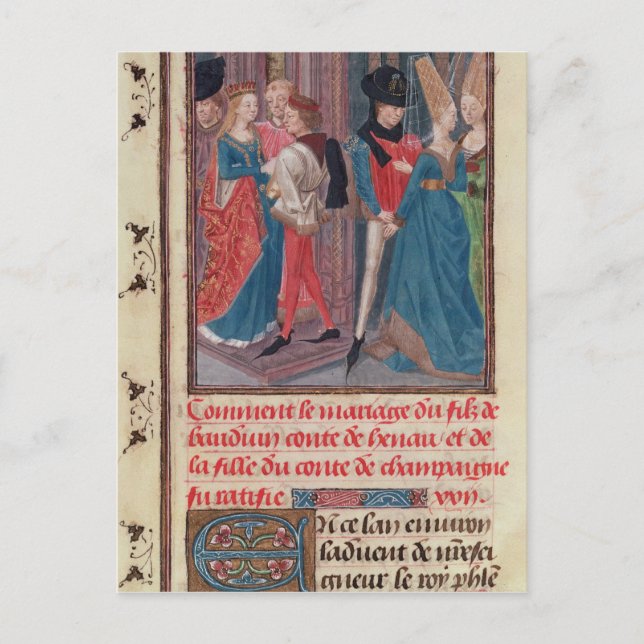 Comment le mariage du filz de
bauduin conte de henau et de
la fille du conte de champaigne
fu ratifie xvon.
En ce lan enuiron
laduent de nresei
gneur le roy phle